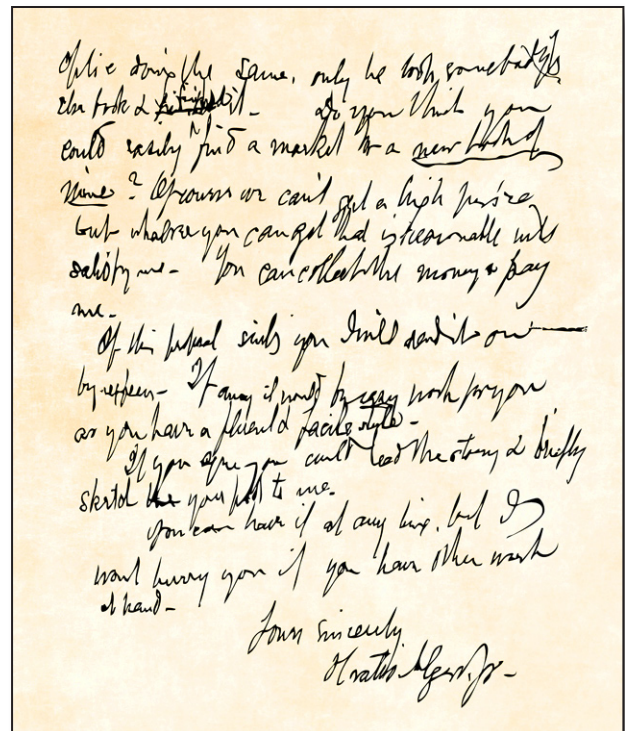 doing the same, only he took somebody's
book & it. Do you think you
could easily find a market for a new book of
mine? Of course we can't get a high price
but whatever you can get that is reasonable will
satisfy me. You can collect the money & pay
me.
If this proposal suits you I will send it on
by express. It would be easy work for you
as you have a fluent & facile style.
If you agree you could read the story & briefly
sketch your plot to me.
You can have it at any time, but I
wont hurry you if you have other work
at hand.
Yours sincerely
Horatio Alger, Jr.